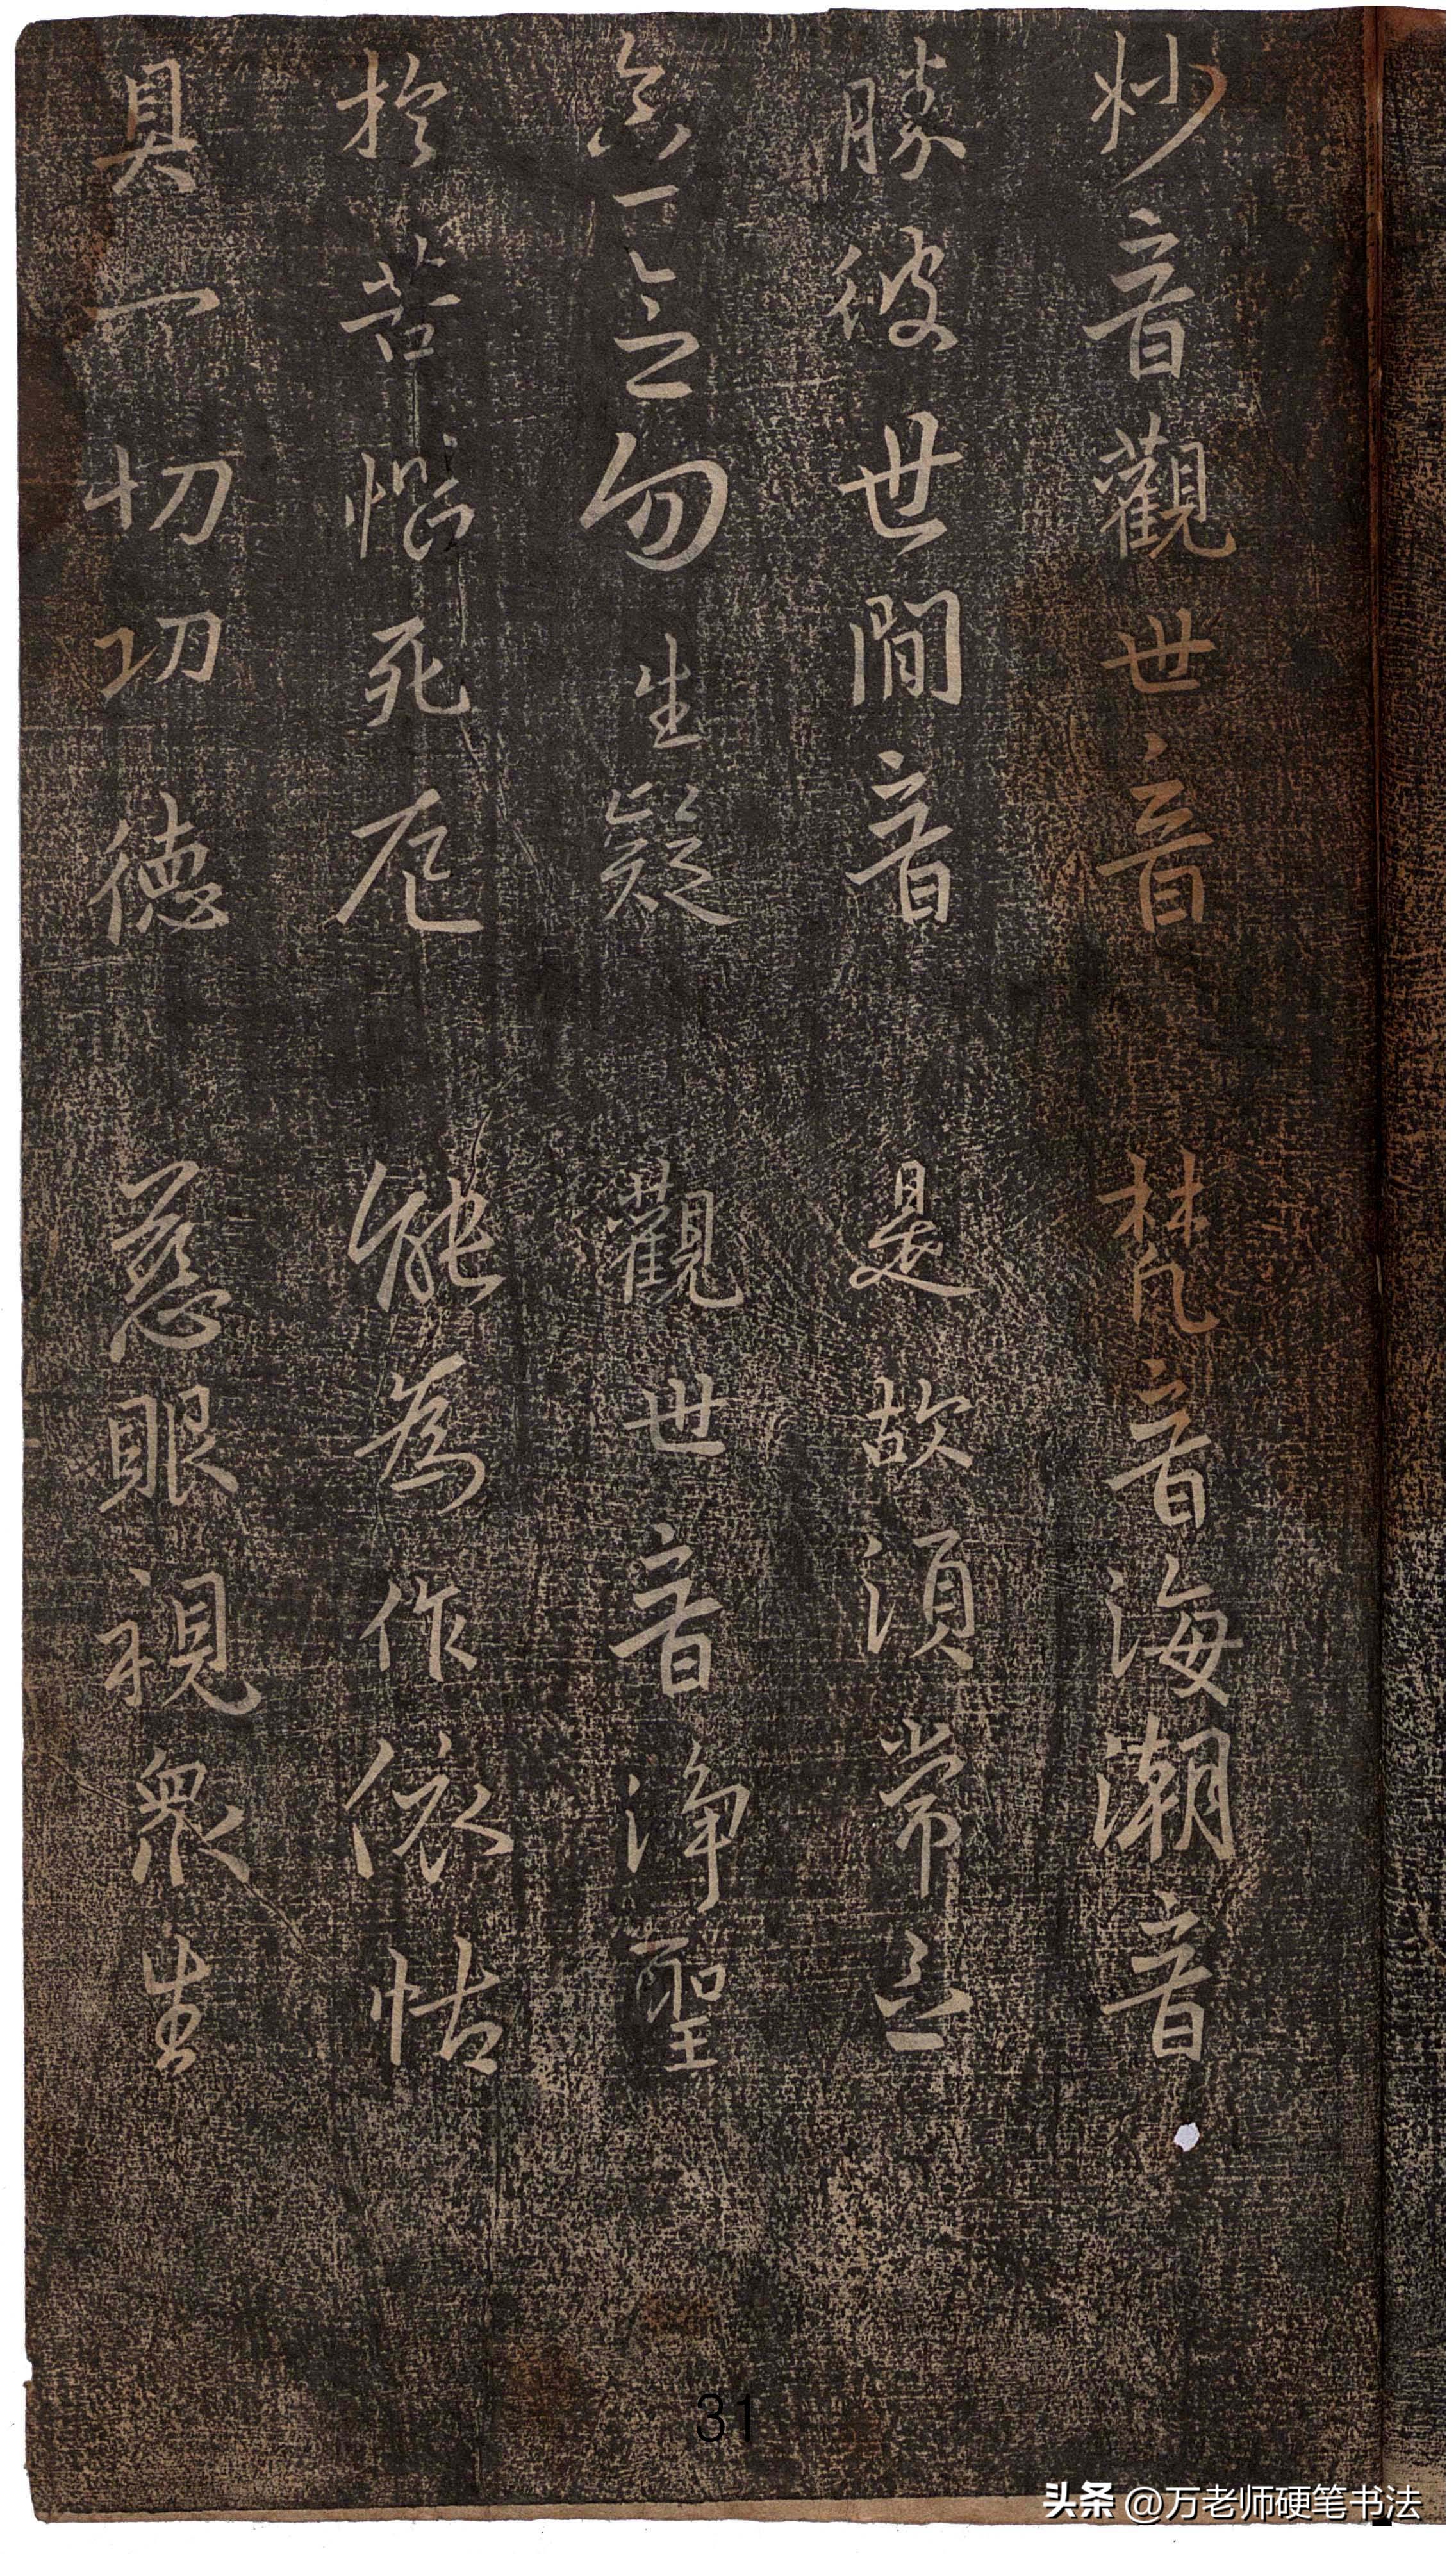 妙音觀世音 梵音海潮音
勝彼世間音 是故須常念
念念勿生疑 觀世音淨聖
於苦惱死厄 能為作依怙
具一切功德 慈眼視眾生
31
头条 @万老师硬笔书法